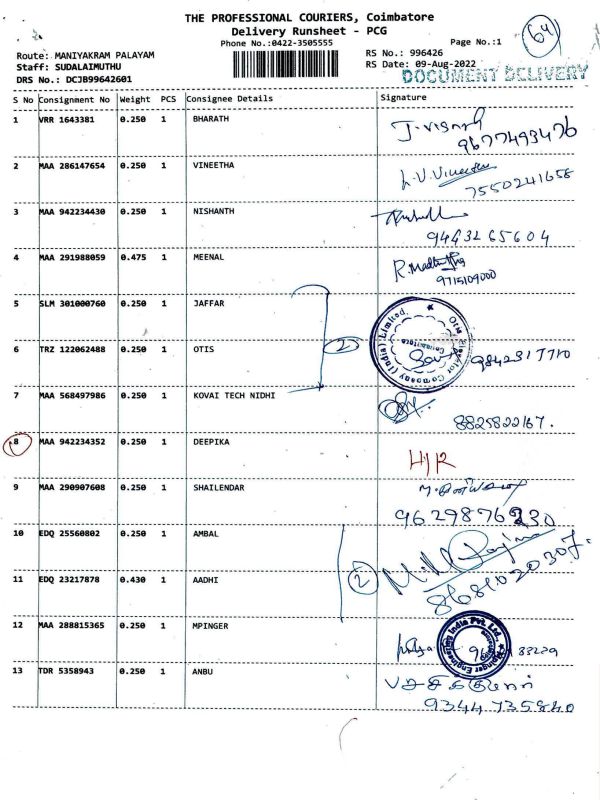 THE PROFESSIONAL COURIERS, Coimbatore
Delivery Runsheet - PCG
Phone No.:0422-3505555
Page No.:1
64
Route: MANIYAKRAM PALAYAM
RS No.: 996426
Staff: SUDALAIMUTHU
RS Date: 09-Aug-2022
DRS No.: DCJB99642601
DOCUMENT DELIVERY
S No Consignment No Weight PCS Consignee Details Signature
1 VRR 1643381 0.250 1 BHARATH
9677493476
2 MAA 286147654 0.250 1 VINEETHA L.V.Vineetha
7550241658
3 MAA 942234430 0.250 1 NISHANTH
9443265604
4 MAA 291988059 0.475 1 MEENAL
9715109000
5 SLM 301000760 0.250 1 JAFFAR
2
Otis Elevator Company (India) Limited.
Coimbatore
6 TRZ 122062488 0.250 1 OTIS
7 MAA 568497986 0.250 1 KOVAI TECH NIDHI
8825822167.
8 MAA 942234352 0.250 1 DEEPIKA
H/R
9 MAA 290907608 0.250 1 SHAILENDAR
9629876230
10 EDQ 25560802 0.250 1 AMBAL
2
11 EDQ 23217878 0.430 1 AADHI
8681020307.
12 MAA 288815365 0.250 1 MPINGER
Mpinger Engineering India Pvt. Ltd.,
13 TDR 5358943 0.250 1 ANBU
9344735840